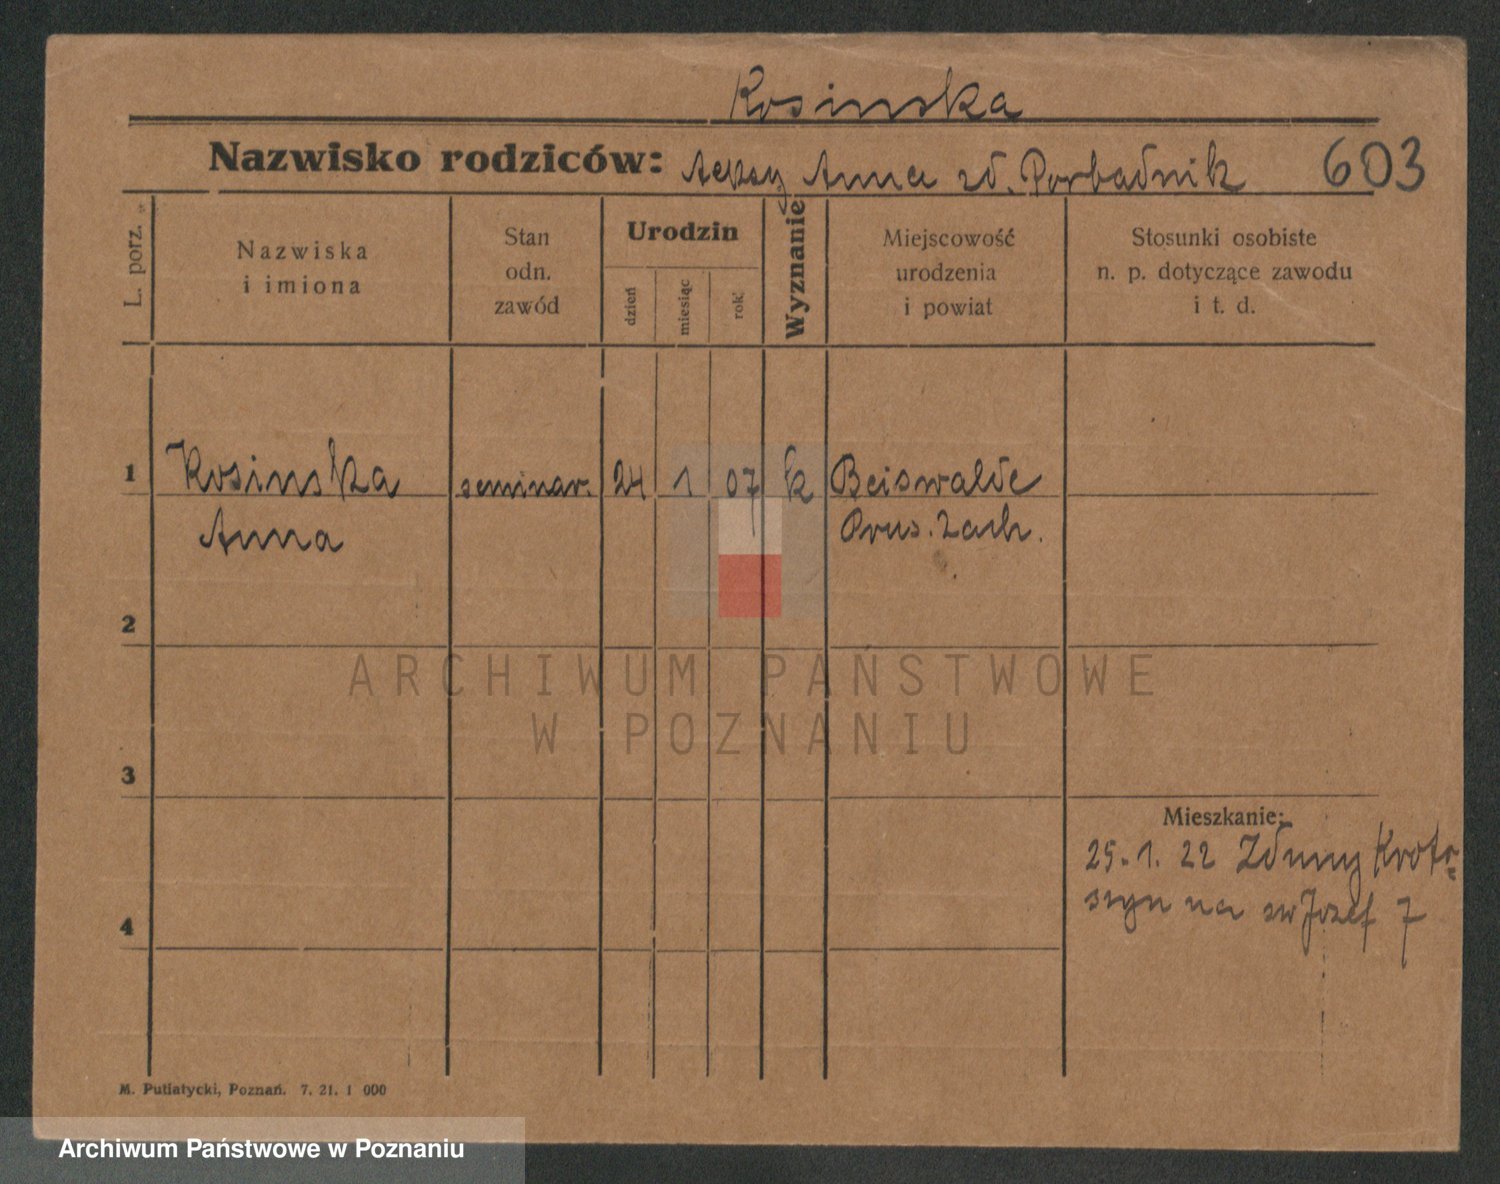 Rosinska
Nazwisko rodziców: Anna zd. Porbadnik 603
L. porz.
Nazwiska
i imiona
Stan
odn.
zawód
Urodzin
dzień
miesiąc
rok
Wyznanie
Miejscowość
urodzenia
i powiat
Stosunki osobiste
n. p. dotyczące zawodu
i t. d.
1 Rosinska seminar. 24 1 07 k Beiswalde
Anna Prus. Zach.
2
ARCHIWUM PAŃSTWOWE
W POZNANIU
3
Mieszkanie:
25.1.22 Zduny Kroto=
szyn na św Józef 7
4
M. Putiatycki, Poznań. 7. 21. 1 000
Archiwum Państwowe w Poznaniu